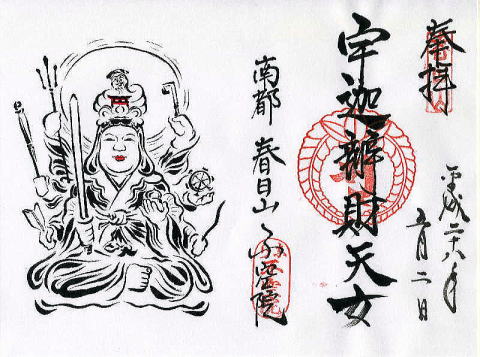 奉拝
平成二十八年
五月二日
宇迦辨財天女
南都 春日山 不空院